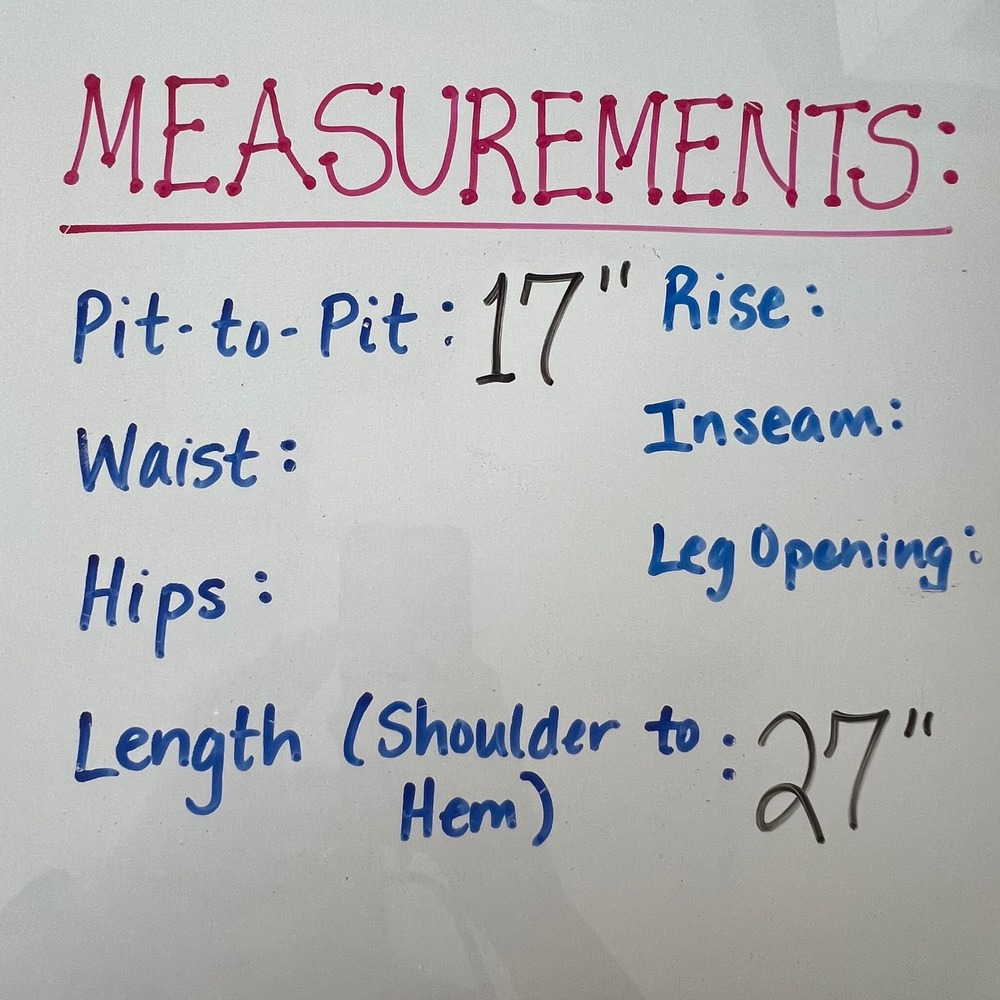 MEASUREMENTS:
Pit-to-Pit: 17" Rise:
Waist: Inseam:
Hips: Leg Opening:
Length (Shoulder to : 27"
Hem)